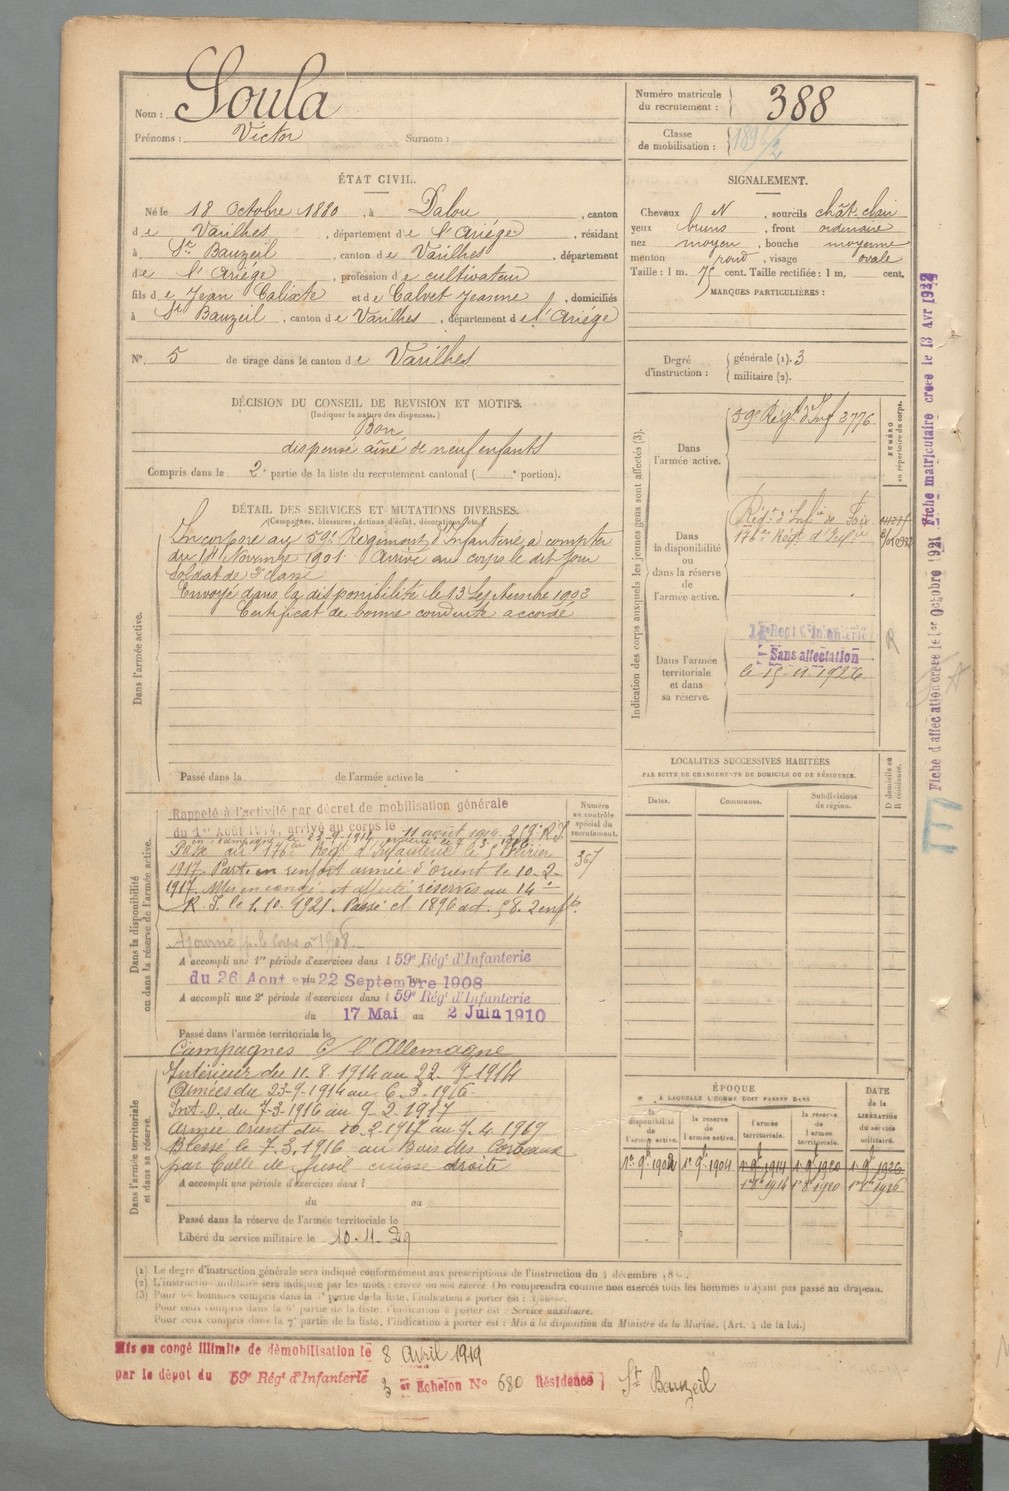 Nom : Soula
Prénoms : Victor Surnom :
Numéro matricule
du recrutement : 388
Classe
de mobilisation :
ÉTAT CIVIL.
Né le 18 Octobre 1880, à Dalou, canton
de Varilhes, département de l'Ariége, résidant
à St Bauzeil, canton de Varilhes, département
de l'Ariége, profession de cultivateur
fils de Jean Calixte et de Calvet Jeanne, domiciliés
à St Bauzeil, canton de Varilhes, département de l'Ariége
N° 5 de tirage dans le canton de Varilhes
SIGNALEMENT.
Cheveux N, sourcils chât. clair
yeux bruns, front ordinaire
nez moyen, bouche moyenne
menton rond, visage ovale
Taille : 1 m. 75 cent. Taille rectifiée : 1 m. cent.
MARQUES PARTICULIÈRES :
Degré
d'instruction :
générale (1). 3
militaire (2).
DÉCISION DU CONSEIL DE REVISION ET MOTIFS.
(Indiquer la nature des dispenses.)
Bon
dispensé aîné de neuf enfants
Compris dans la 2e partie de la liste du recrutement cantonal ( e portion).
DÉTAIL DES SERVICES ET MUTATIONS DIVERSES.
(Campagnes, blessures, actions d'éclat, décorations, etc.)
Dans l'armée active.
Incorporé au 59e Régiment d'Infanterie à compter
du 14 Novembre 1901. Arrivé au corps le dit jour
soldat de 2e classe
Envoyé dans la disponibilité le 13 Septembre 1902
Certificat de bonne conduite accordé
Passé dans la de l'armée active le
Indication des corps auxquels les jeunes gens sont affectés (3).
NUMÉRO
au répertoire du corps.
Dans
l'armée active.
59e Régt d'Inf 2776
Dans
la disponibilité
ou
dans la réserve
de
l'armée active.
Régt d'Infie de Foix
176e Régt d'Infie
Dans l'armée
territoriale
et dans
sa réserve.
Sans affectation
le 15-11-1926
LOCALITÉS SUCCESSIVES HABITÉES
PAR SUITE DE CHANGEMENTS DE DOMICILE OU DE RÉSIDENCE.
D domicile ou
R résidence.
Dates. Communes. Subdivisions
de région.
Dans la disponibilité
ou dans la réserve de l'armée active.
Numéro
au contrôle
spécial du
recrutement.
367
Rappelé à l'activité par décret de mobilisation générale
du 1er Août 1914, arrivé au corps le 11 août 1914. 259e R.I.
Passé au 176e Régt d'Infanterie le 5 Février
1917. Parti en renfort armée d'Orient le 10-2-
1917. Mis en congé et affecté réserves au 14e
R. I. le 1.10.1921. Passé cl 1896 art. 58. 2 enfts.
Ajourné p. le Corps à 1908.
A accompli une 1re période d'exercices dans l 59e Rég' d'Infanterie
du 26 Août au 22 Septembre 1908
A accompli une 2e période d'exercices dans l 59e Rég' d'Infanterie
du 17 Mai au 2 Juin 1910
Passé dans l'armée territoriale le
Campagnes C/ l'Allemagne
Dans l'armée territoriale
et dans sa réserve.
Intérieur du 11.8.1914 au 22 9 1914
Armées du 23-9-1914 au 6.3.1916
Int. du 7-3-1916 au 9.2.1917
Armée Orient du 10.2.1917 au 7.4.1919
Blessé le 7.3.1916 au Bois des Corbeaux
par balle de fusil cuisse droite
A accompli une période d'exercices dans l
du au
Passé dans la réserve de l'armée territoriale le
Libéré du service militaire le 10.11.29
ÉPOQUE
À LAQUELLE L'HOMME DOIT PASSER DANS
DATE
de la
LIBÉRATION
du service
militaire.
la
disponibilité
de
l'armée active.
la réserve
de
l'armée active.
l'armée
territoriale.
la réserve
de
l'armée
territoriale.
1er 9bre 1904
(1) Le degré d'instruction générale sera indiqué conformément aux prescriptions de l'instruction du 4 décembre
(2) L'instruction militaire sera indiquée par les mots : exercé ou non exercé. On comprendra comme non exercés tous les hommes n'ayant pas passé au drapeau.
(3) Pour les hommes compris dans la partie de la liste, l'indication à porter est :
Pour ceux compris dans la 6e partie de la liste, l'indication à porter est : Service auxiliaire.
Pour ceux compris dans la 7e partie de la liste, l'indication à porter est : Mis à la disposition du Ministre de la Marine. (Art. 4 de la loi.)
Mis en congé illimité de démobilisation le 8 Avril 1919
par le dépôt du 59e Rég' d'Infanterie 3 Echelon N° 680 Résidence St Bauzeil
Fiche d'affectation créée le 1er Octobre 1921 Fiche matriculaire créée le 13 Avr